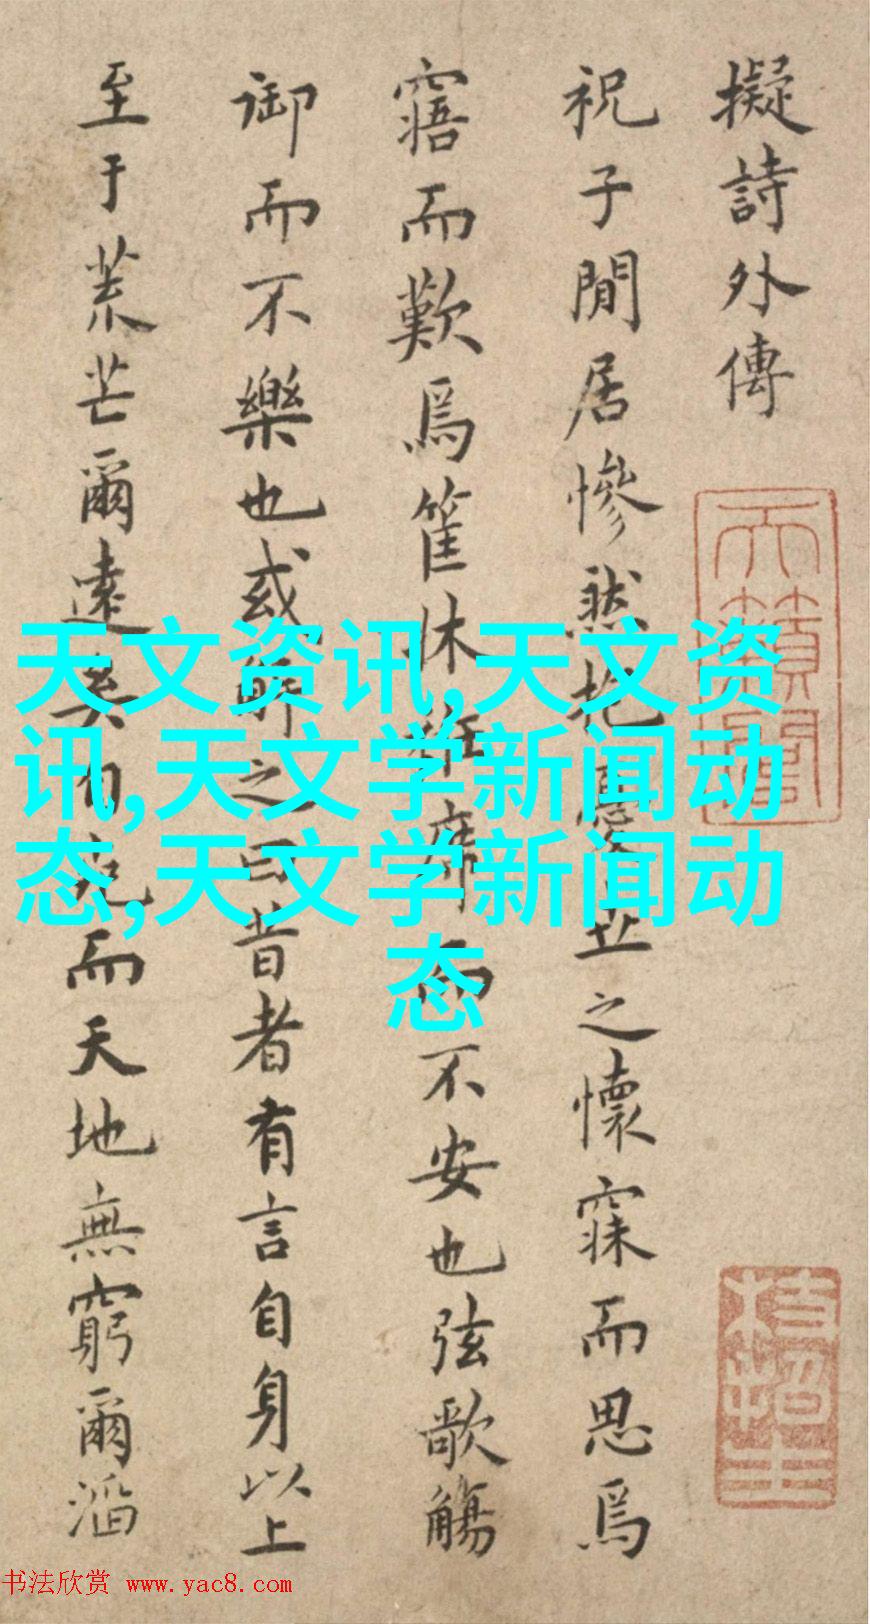 擬詩外傳
祝子閒居慘然抱憂世之懷寐而思焉
寤而歎焉筐牀衽席而不安也弦歌觴
御而不樂也或解之曰昔者有言自身以上
至于荒芒爾遠矣自死而天地無窮爾滔
天籟閣
天文资讯,天文资
讯,天文学新闻动
态,天文学新闻动
态
书法欣赏 www.yac8.com